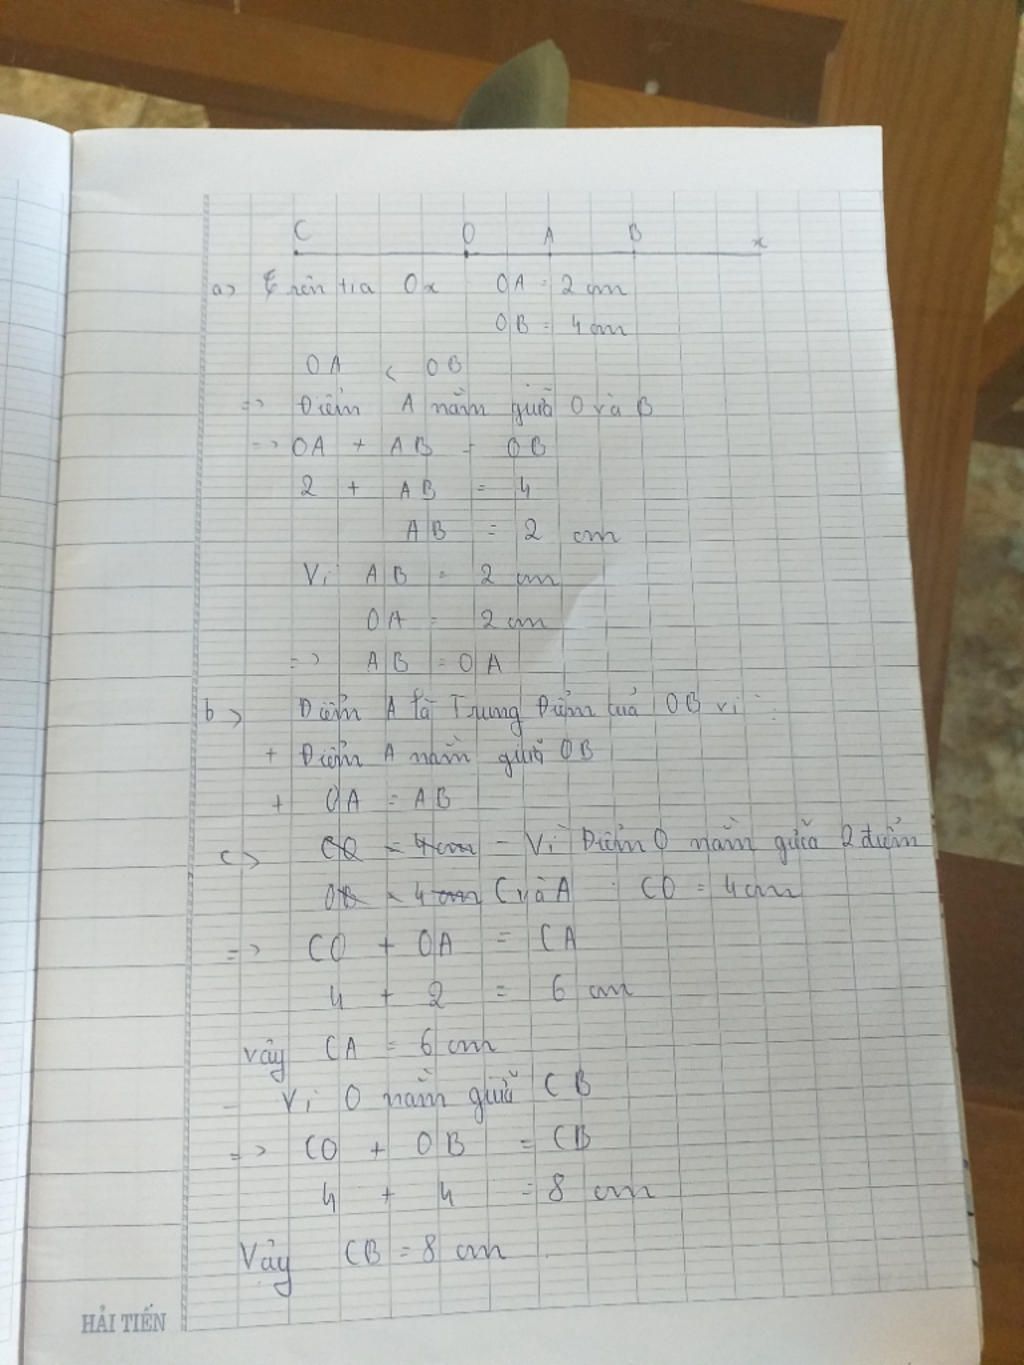 C O A B x
a) Trên tia Ox OA = 2 cm
OB = 4 cm
OA < OB
=> Điểm A nằm giữa O và B
=> OA + AB = OB
2 + AB = 4
AB = 2 cm
Vì AB = 2 cm
OA = 2 cm
=> AB = OA
b) Điểm A là Trung Điểm của OB vì :
+ Điểm A nằm giữa OB
+ OA = AB
c) CO = 4cm - Vì Điểm O nằm giữa 2 điểm
OB = 4 cm C và A : CO = 4cm
=> CO + OA = CA
4 + 2 = 6 cm
Vậy CA = 6 cm
- Vì O nằm giữa CB
=> CO + OB = CB
4 + 4 = 8 cm
Vậy CB = 8 cm
HẢI TIẾN